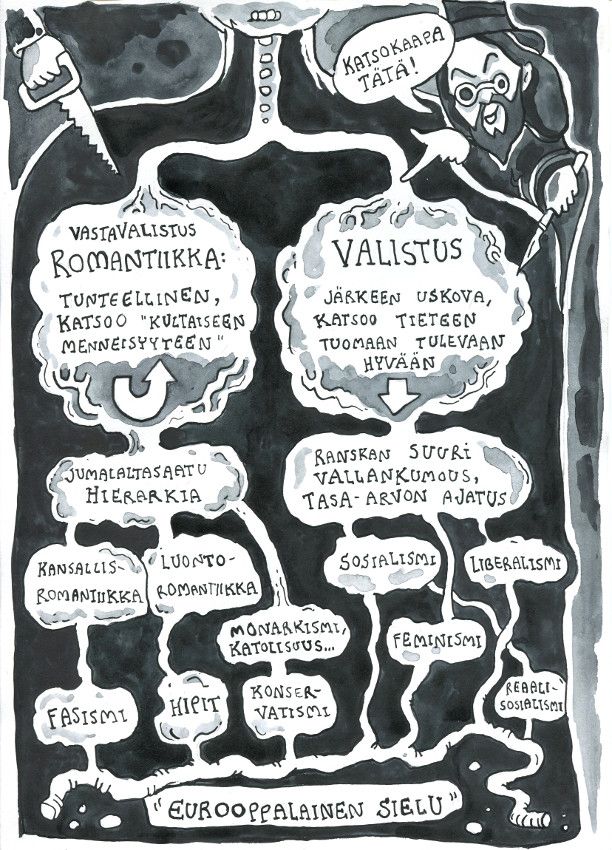 KATSOKAAPA
TÄTÄ!
VASTAVALISTUS
ROMANTIIKKA:
TUNTEELLINEN,
KATSOO "KULTAISEEN
MENNEISYYTEEN"
VALISTUS
JÄRKEEN USKOVA,
KATSOO TIETEEN
TUOMAAN TULEVAAN
HYVÄÄN
JUMALALTASAATU
HIERARKIA
RANSKAN SUURI
VALLANKUMOUS,
TASA-ARVON AJATUS
KANSALLIS-
ROMANTIIKKA
LUONTO-
ROMANTIIKKA
MONARKISMI,
KATOLISUUS...
SOSIALISMI
LIBERALISMI
FEMINISMI
FASISMI
HIPIT
KONSER-
VATISMI
REAALI-
SOSIALISMI
"EUROOPPALAINEN SIELU"